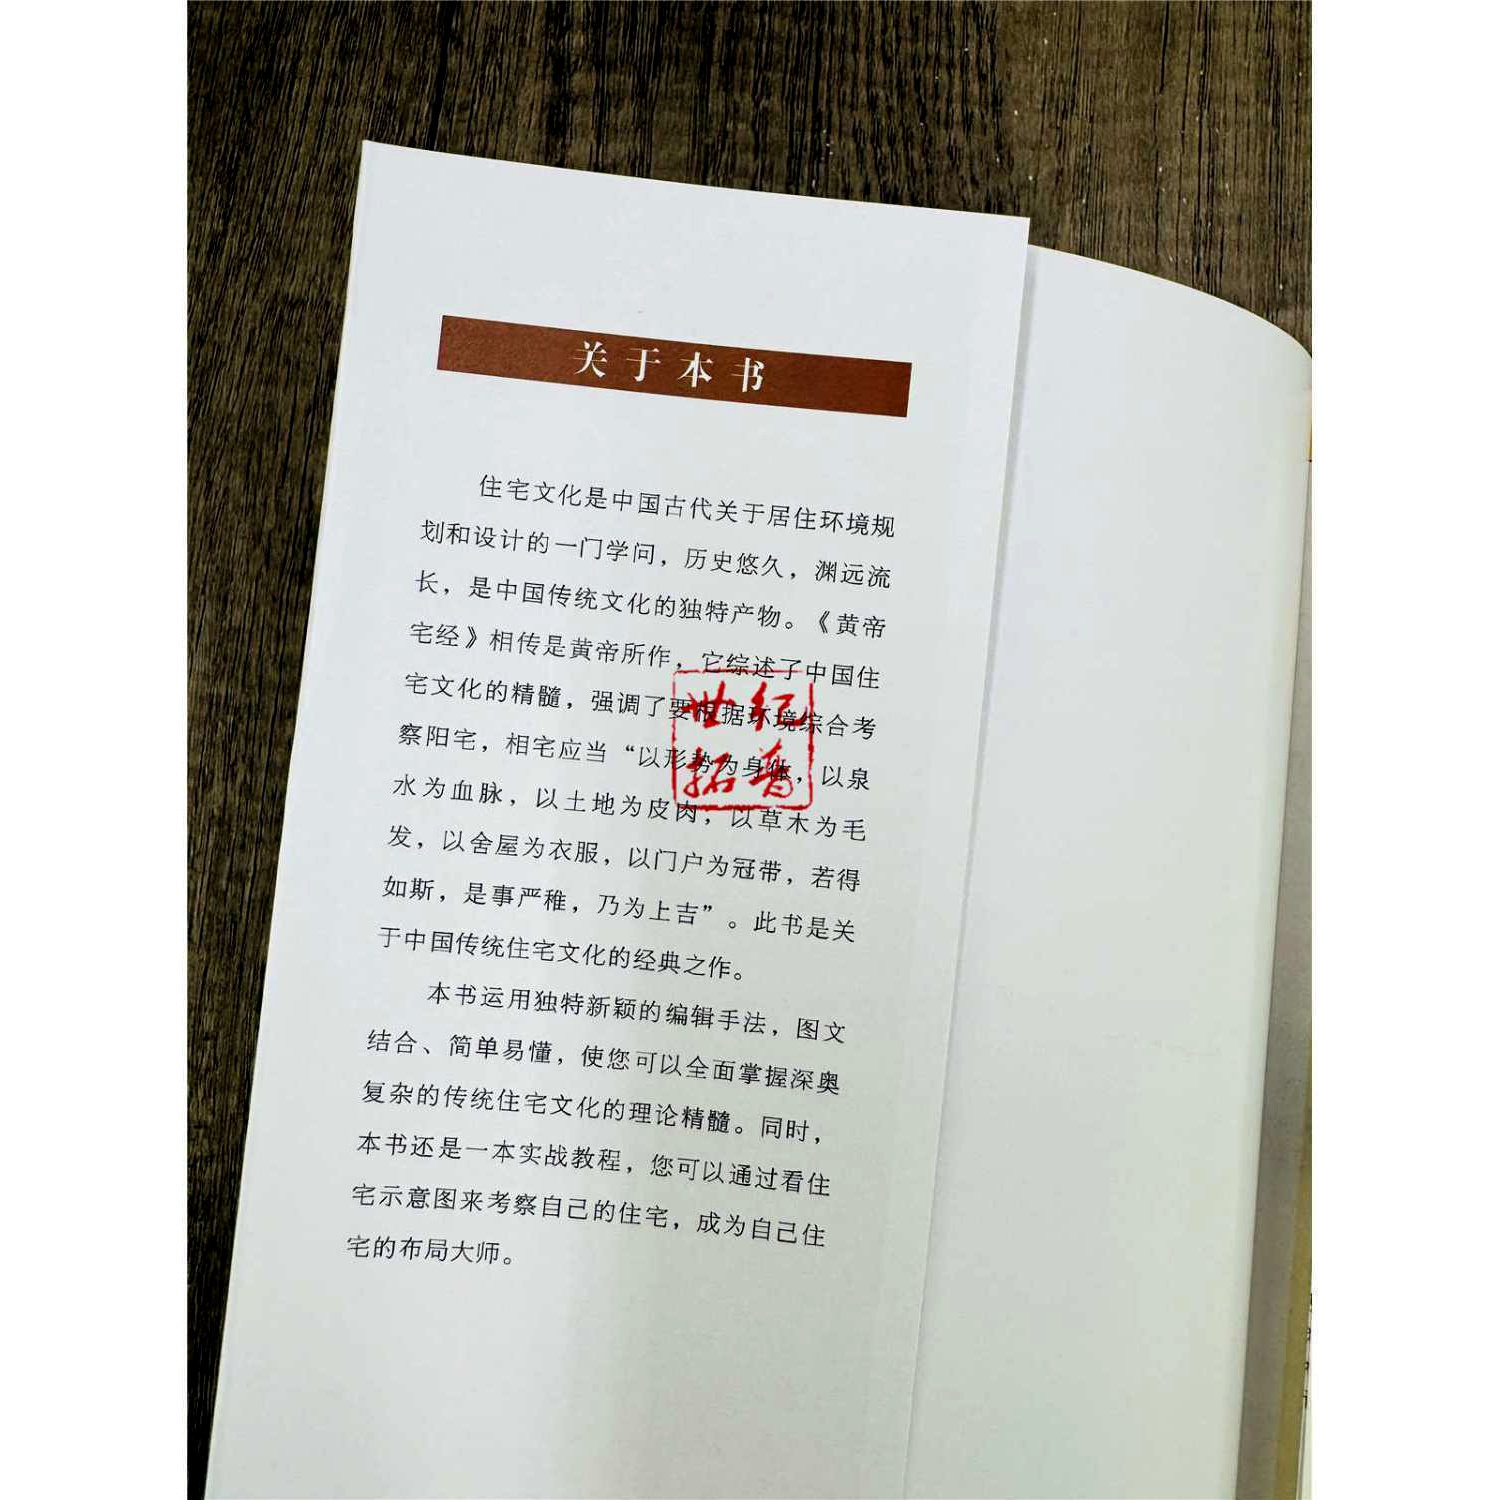 关于本书
住宅文化是中国古代关于居住环境规
划和设计的一门学问，历史悠久，渊远流
长，是中国传统文化的独特产物。《黄帝
宅经》相传是黄帝所作，它综述了中国住
宅文化的精髓，强调了要根据环境综合考
察阳宅，相宅应当“以形势为身体，以泉
水为血脉，以土地为皮肉，以草木为毛
发，以舍屋为衣服，以门户为冠带，若得
如斯，是事严稚，乃为上吉”。此书是关
于中国传统住宅文化的经典之作。
本书运用独特新颖的编辑手法，图文
结合、简单易懂，使您可以全面掌握深奥
复杂的传统住宅文化的理论精髓。同时，
本书还是一本实战教程，您可以通过看住
宅示意图来考察自己的住宅，成为自己住
宅的布局大师。
世纪
拓普